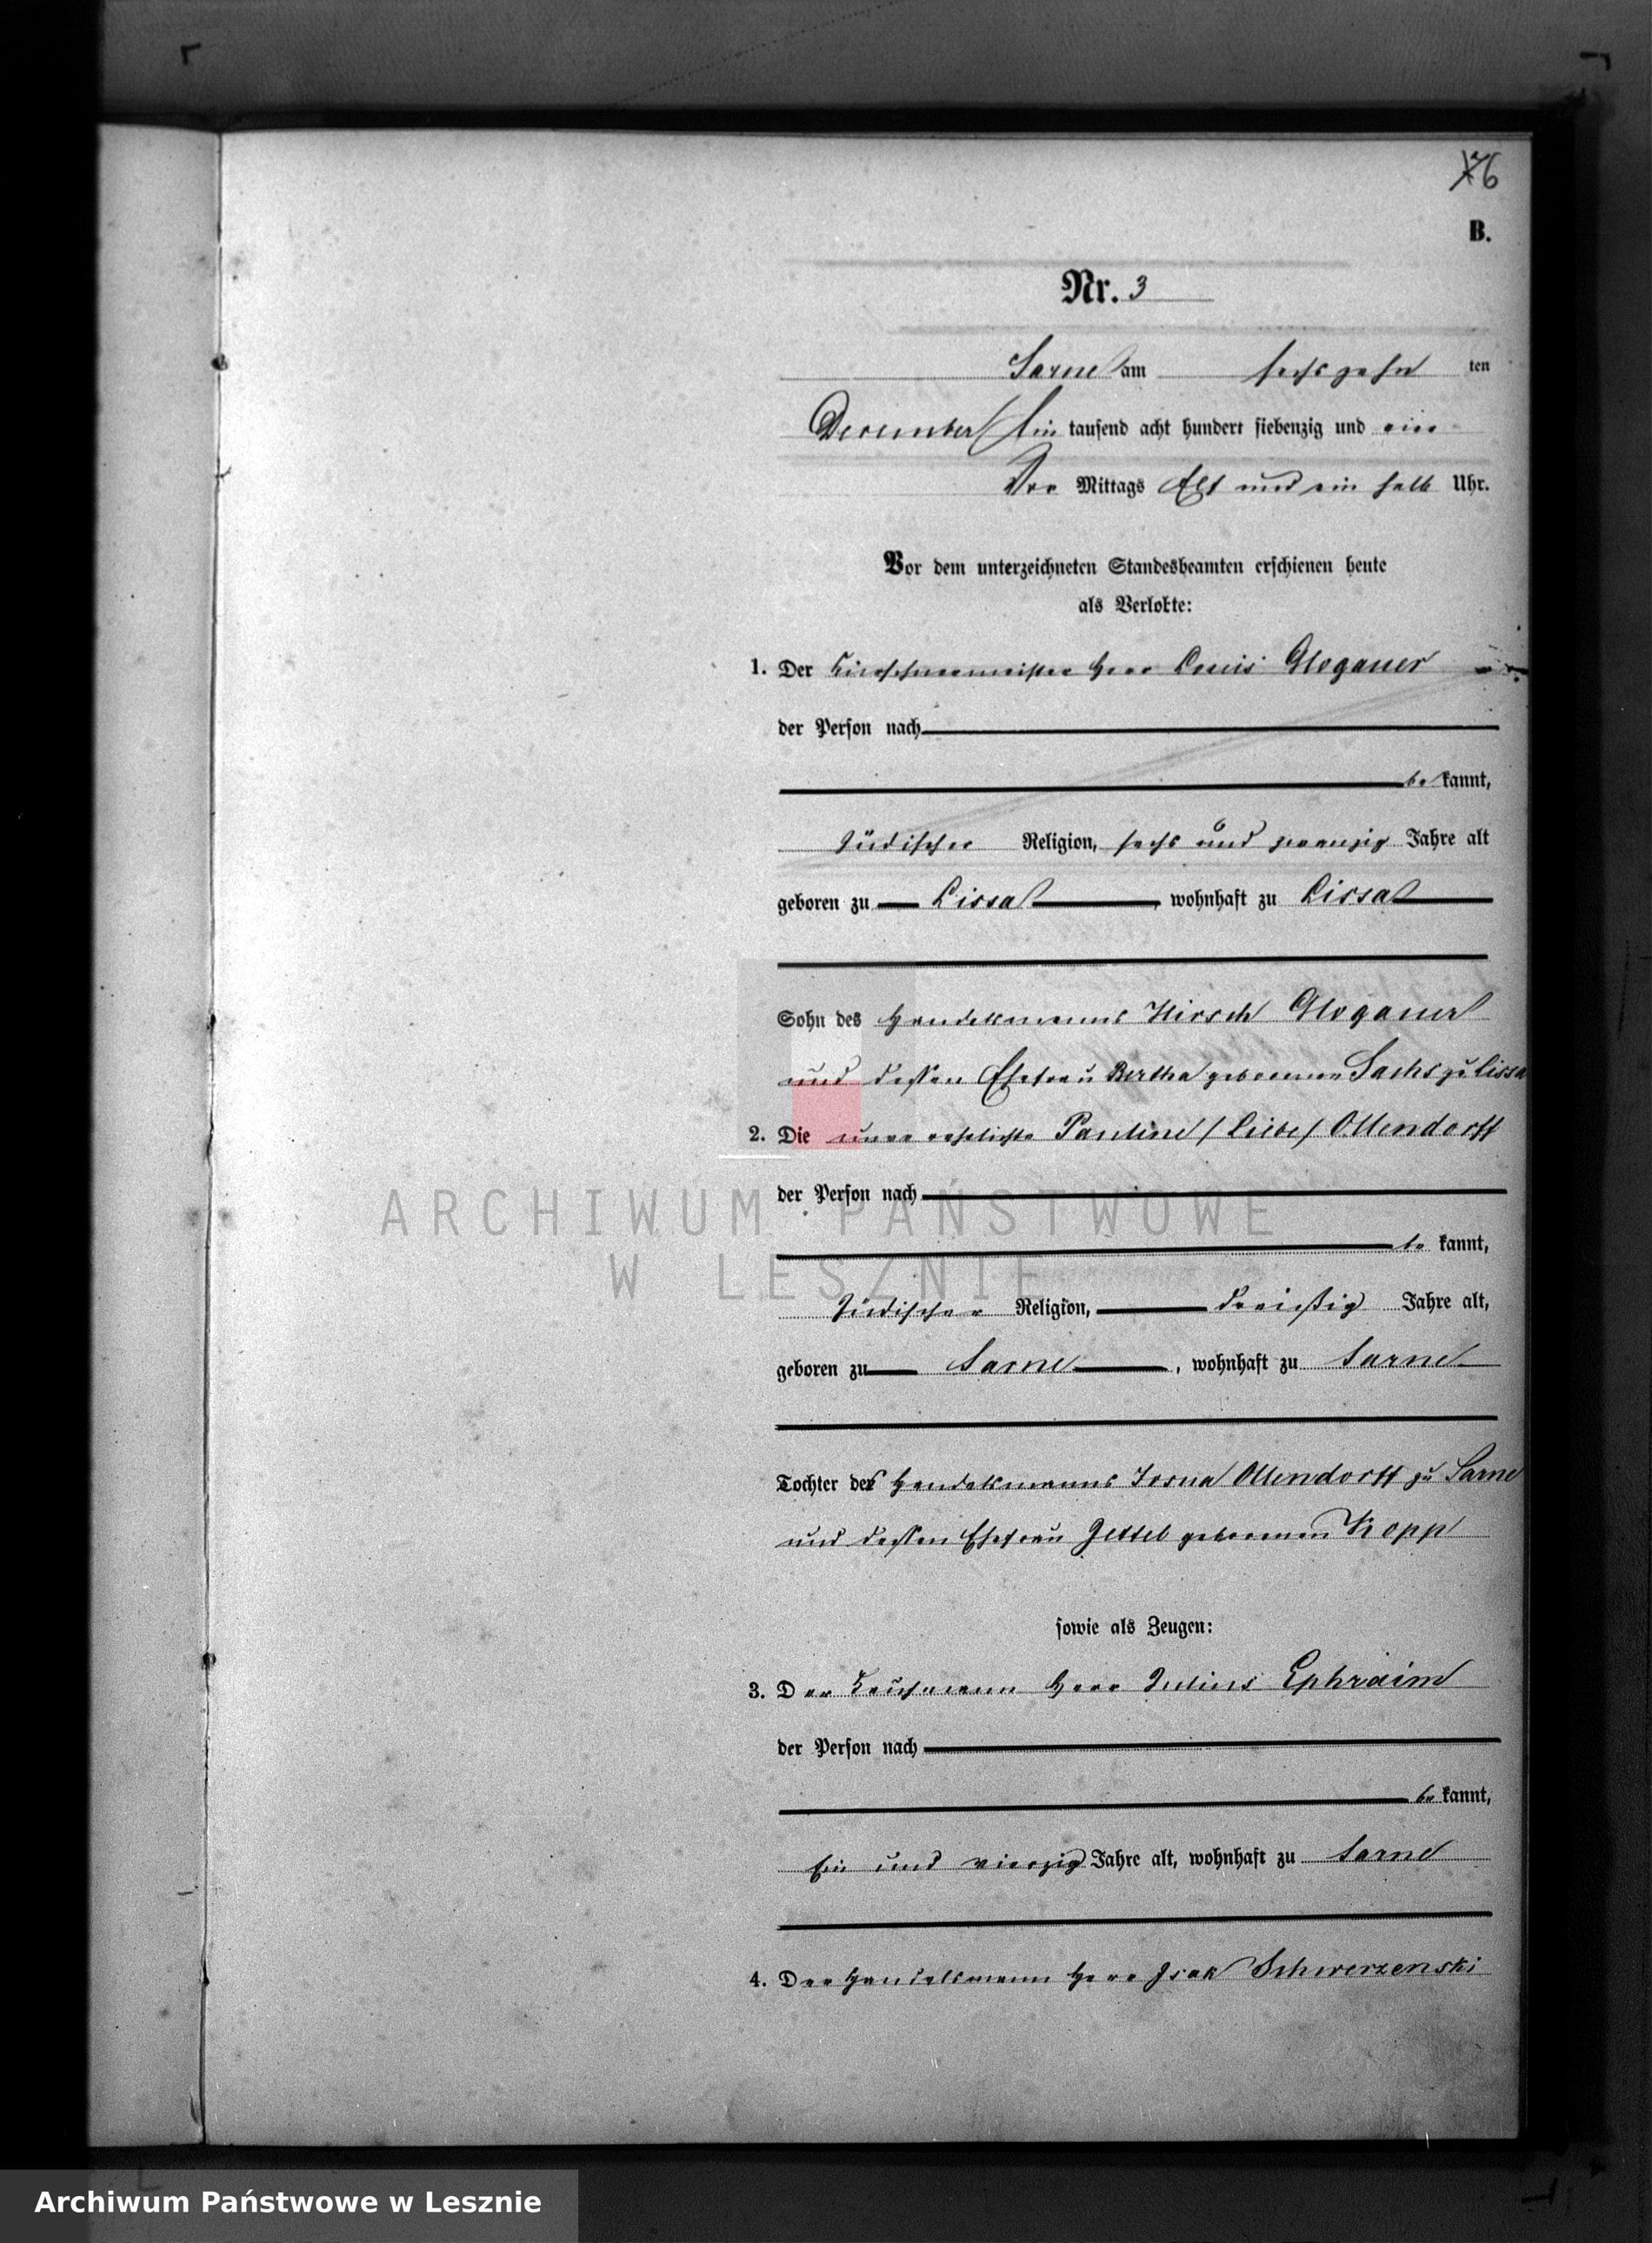 76
B.
Nr. 3
Sarne am sechszehn ten
December Ein tausend acht hundert siebenzig und
Vor Mittags Elf und ein halb Uhr.
Vor dem unterzeichneten Standesbeamten erschienen heute
als Verlobte:
1. Der Kürschnermeister Herr Louis Glogauer
der Person nach
be kannt,
Jüdischer Religion, sechs und zwanzig Jahre alt
geboren zu Lissa, wohnhaft zu Lissa
Sohn des Handelsmanns Hirsch Glogauer
und dessen Ehefrau Bertha geborenen Sachs zu Lissa
2. Die unverehelichte Pauline / Liebe / Ollendorff
der Person nach
ARCHIWUM PAŃSTWOWE
be kannt,
W LESZNIE
Jüdischer Religion, dreißig Jahre alt,
geboren zu Sarne, wohnhaft zu Sarne
Tochter des Handelsmanns Josua Ollendorff zu Sarne
und dessen Ehefrau Zettel geborenen Kopp
sowie als Zeugen:
3. Der Kaufmann Herr Julius Ephraim
der Person nach
be kannt,
Ein und vierzig Jahre alt, wohnhaft zu Sarne
4. Der Handelsmann Herr Isak Schwerzenski
Archiwum Państwowe w Lesznie